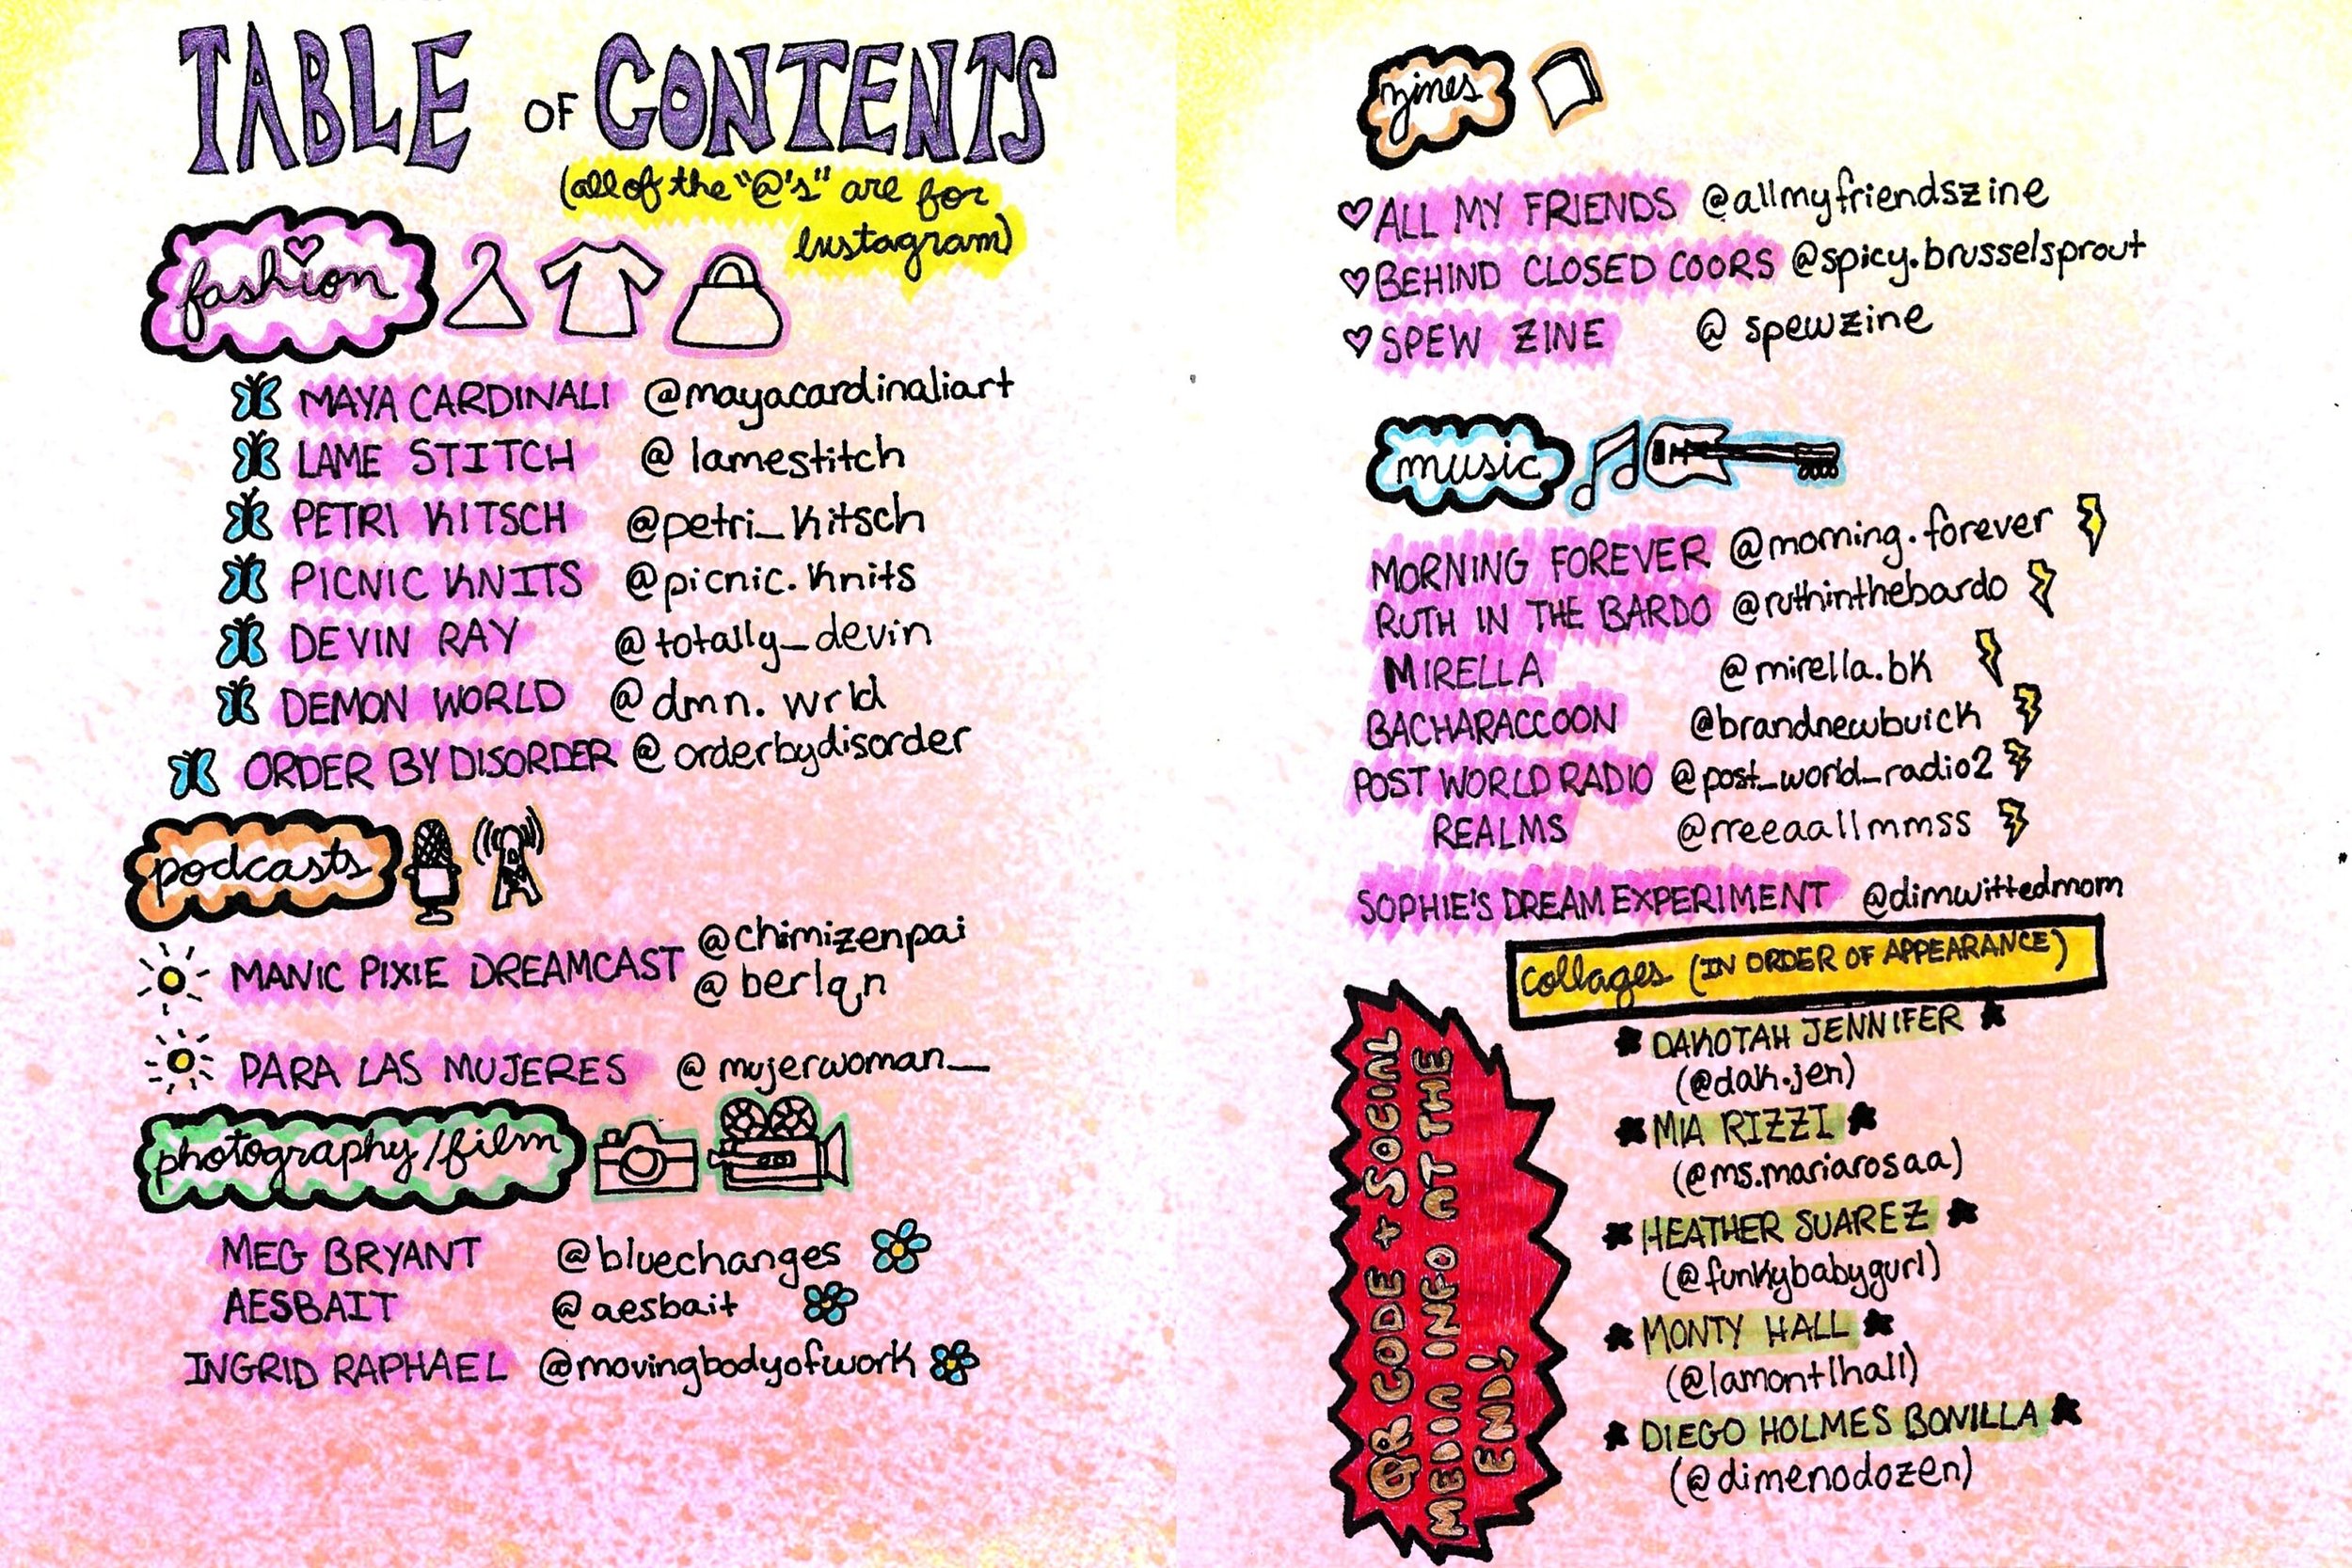 TABLE OF CONTENTS
(all of the "@'s" are for
Instagram)
fashion
MAYA CARDINALI @mayacardinaliart
LAME STITCH @lamestitch
PETRI KITSCH @petri_kitsch
PICNIC KNITS @picnic.knits
DEVIN RAY @totally_devin
DEMON WORLD @dmn.wrld
ORDER BY DISORDER @orderbydisorder
podcasts
MANIC PIXIE DREAMCAST @chimizenpai
@berlq,n
PARA LAS MUJERES @mujerwoman_
photography/film
MEG BRYANT @bluechanges
AESBAIT @aesbait
INGRID RAPHAEL @movingbodyofwork
zines
ALL MY FRIENDS @allmyfriendszine
BEHIND CLOSED COORS @spicy.brusselsprout
SPEW ZINE @spewzine
music
MORNING FOREVER @morning.forever
RUTH IN THE BARDO @ruthinthebardo
MIRELLA @mirella.bk
BACHARACCOON @brandnewbuick
POST WORLD RADIO @post_world_radio2
REALMS @rreeaallmmss
SOPHIE'S DREAM EXPERIMENT @dimwittedmom
collages (IN ORDER OF APPEARANCE)
DAKOTAH JENNIFER
(@dak.jen)
MIA RIZZI
(@ms.mariarosaa)
HEATHER SUAREZ
(@funkybabygurl)
MONTY HALL
(@lamontlhall)
DIEGO HOLMES BONILLA
(@dimenodozen)
QR CODE + SOCIAL
MEDIA INFO AT THE
END!